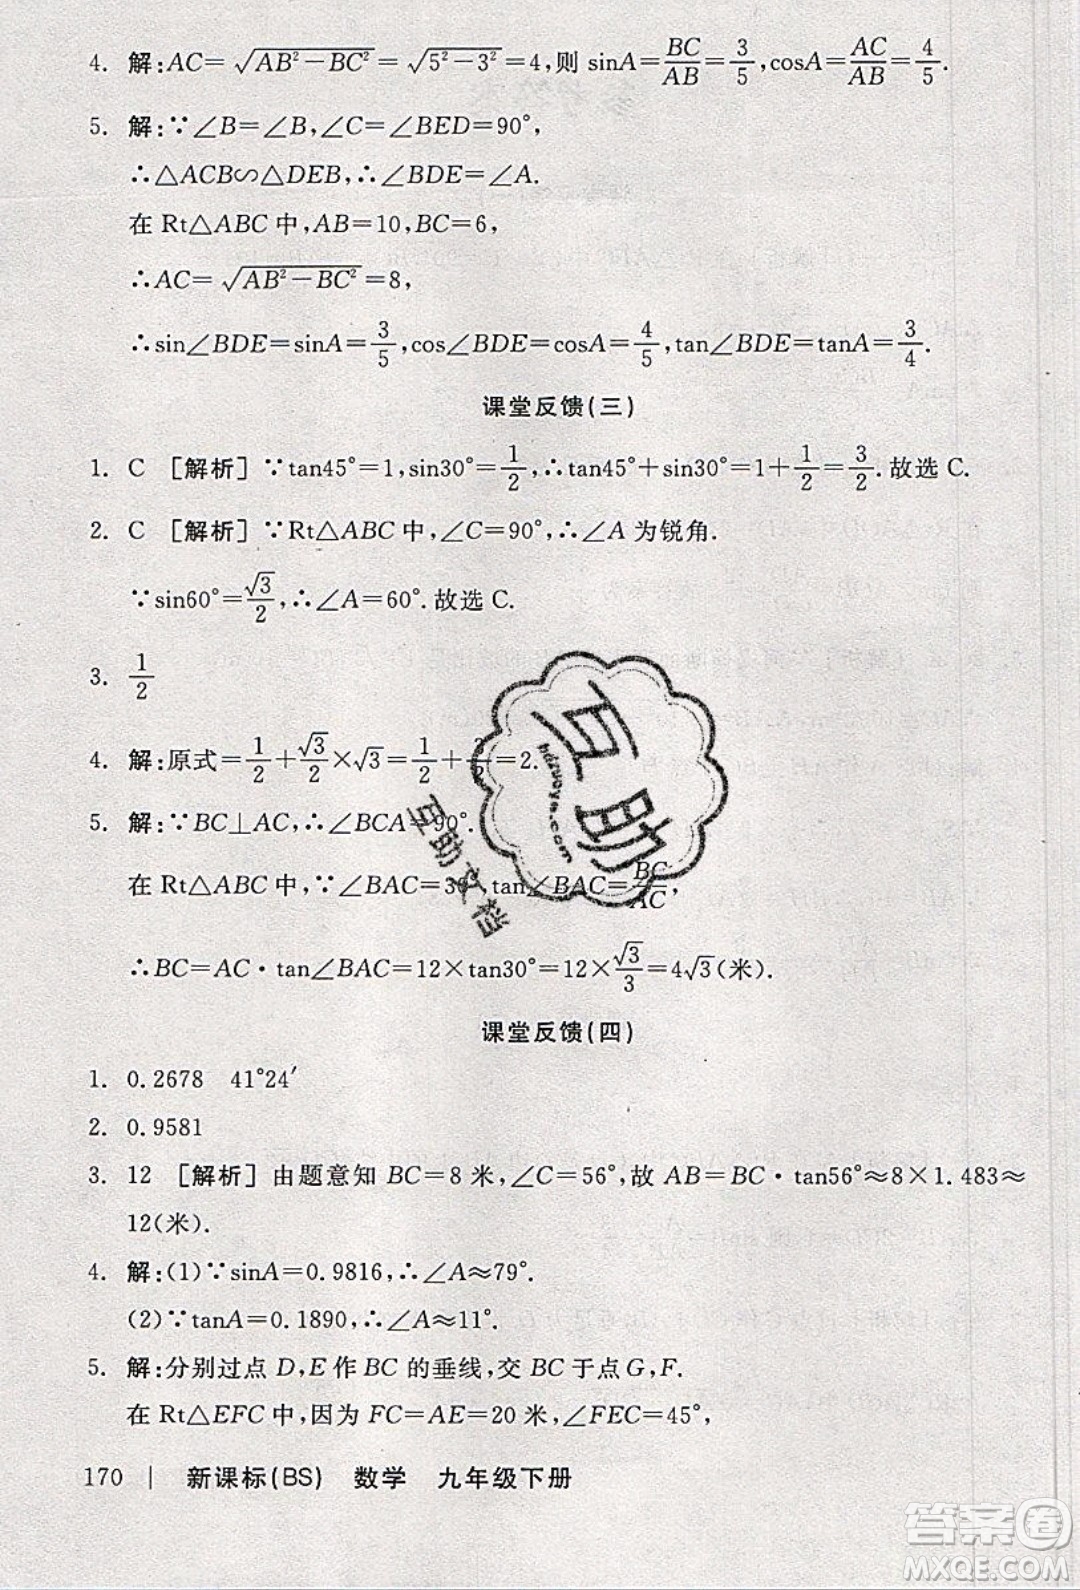 4. 解:AC=√(AB²-BC²)=√(5²-3²)=4,则 sinA=BC/AB=3/5,cosA=AC/AB=4/5.
5. 解:∵∠B=∠B,∠C=∠BED=90°,
∴△ACB∽△DEB,∴∠BDE=∠A.
在 Rt△ABC 中,AB=10,BC=6,
∴AC=√(AB²-BC²)=8,
∴sin∠BDE=sinA=3/5,cos∠BDE=cosA=4/5,tan∠BDE=tanA=3/4.
课堂反馈(三)
1. C [解析] ∵tan45°=1,sin30°=1/2,∴tan45°+sin30°=1+1/2=3/2.故选 C.
2. C [解析] ∵Rt△ABC 中,∠C=90°,∴∠A 为锐角.
∵sin60°=√3/2,∴∠A=60°.故选 C.
3. 1/2
4. 解:原式=1/2+√3/2×√3=1/2+3/2=2.
5. 解:∵BC⊥AC,∴∠BCA=90°.
在 Rt△ABC 中,∵∠BAC=30°,tan∠BAC=BC/AC,
∴BC=AC·tan∠BAC=12×tan30°=12×√3/3=4√3(米).
课堂反馈(四)
1. 0.2678 41°24′
2. 0.9581
3. 12 [解析] 由题意知 BC=8 米,∠C=56°,故 AB=BC·tan56°≈8×1.483≈
12(米).
4. 解:(1)∵sinA=0.9816,∴∠A≈79°.
(2)∵tanA=0.1890,∴∠A≈11°.
5. 解:分别过点 D,E 作 BC 的垂线,交 BC 于点 G,F.
在 Rt△EFC 中,因为 FC=AE=20 米,∠FEC=45°,
170 | 新课标(BS) 数学 九年级下册
互助
hdzuoye.com
互助文档
答案圈
MXQE.COM